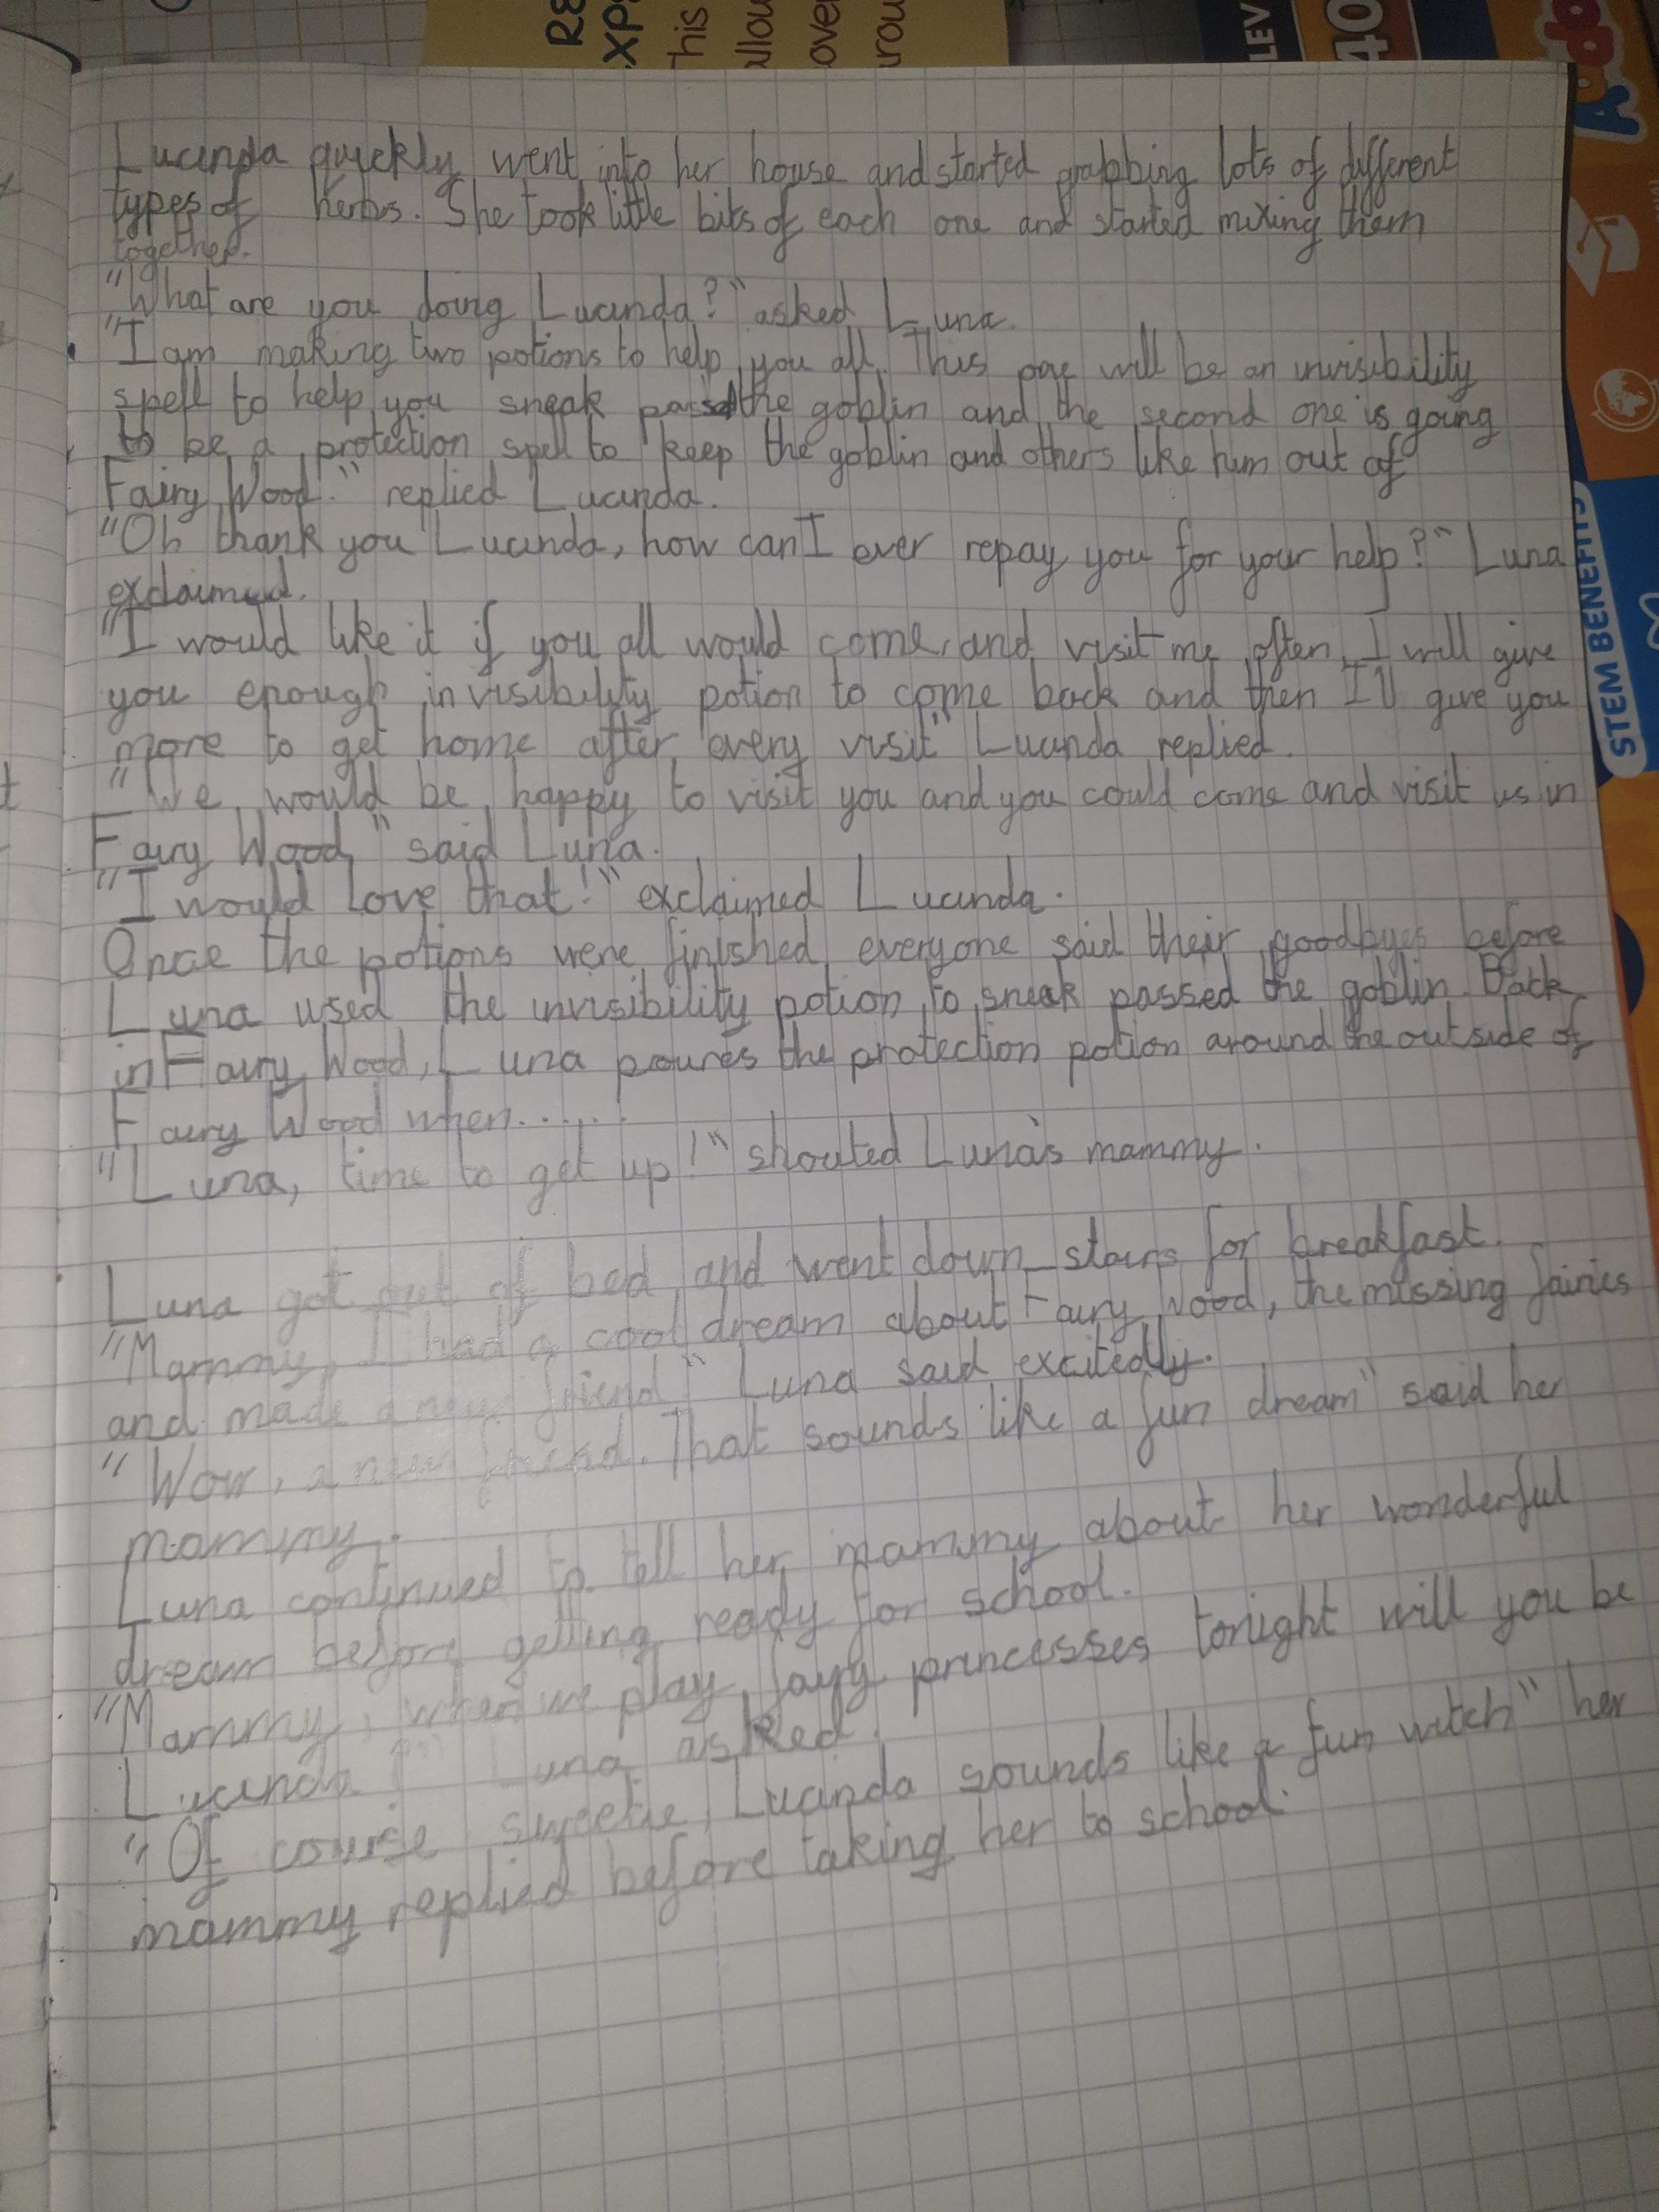 RE
XPE
This
allou
over
arou
LEV
40
STEM BENEFITS
Lucinda quickly went into her house and started grabbing lots of different
types of herbs. She took little bits of each one and started mixing them
together.
"What are you doing Lucinda?" asked Luna.
"I am making two potions to help you all. This one will be an invisibility
spell to help you sneak passed the goblin and the second one is going
to be a protection spell to keep the goblin and others like him out of
Fairy Wood." replied Lucinda.
"Oh thank you Lucinda, how can I ever repay you for your help?" Luna
exclaimed.
"I would like it if you all would come and visit me often, I will give
you enough invisibility potion to come back and then I'll give you
more to get home after every visit" Lucinda replied.
"We would be happy to visit you and you could come and visit us in
Fairy Wood" said Luna.
"I would love that!" exclaimed Lucinda.
Once the potions were finished everyone said their goodbyes before
Luna used the invisibility potion to sneak passed the goblin. Back
in Fairy Wood, Luna poures the protection potion around the outside of
Fairy Wood when......
"Luna, time to get up!" shouted Luna's mammy.
Luna got out of bed and went down stairs for breakfast.
"Mammy, I had a cool dream about Fairy Wood, the missing fairies
and made a new friend" Luna said excitedly.
"Wow, a new friend. That sounds like a fun dream" said her
mammy.
Luna continued to tell her mammy about her wonderful
dream before getting ready for school.
"Mammy, when we play fairy princesses tonight will you be
Lucinda?" Luna asked.
"Of course sweetie, Lucinda sounds like a fun witch" her
mammy replied before taking her to school.